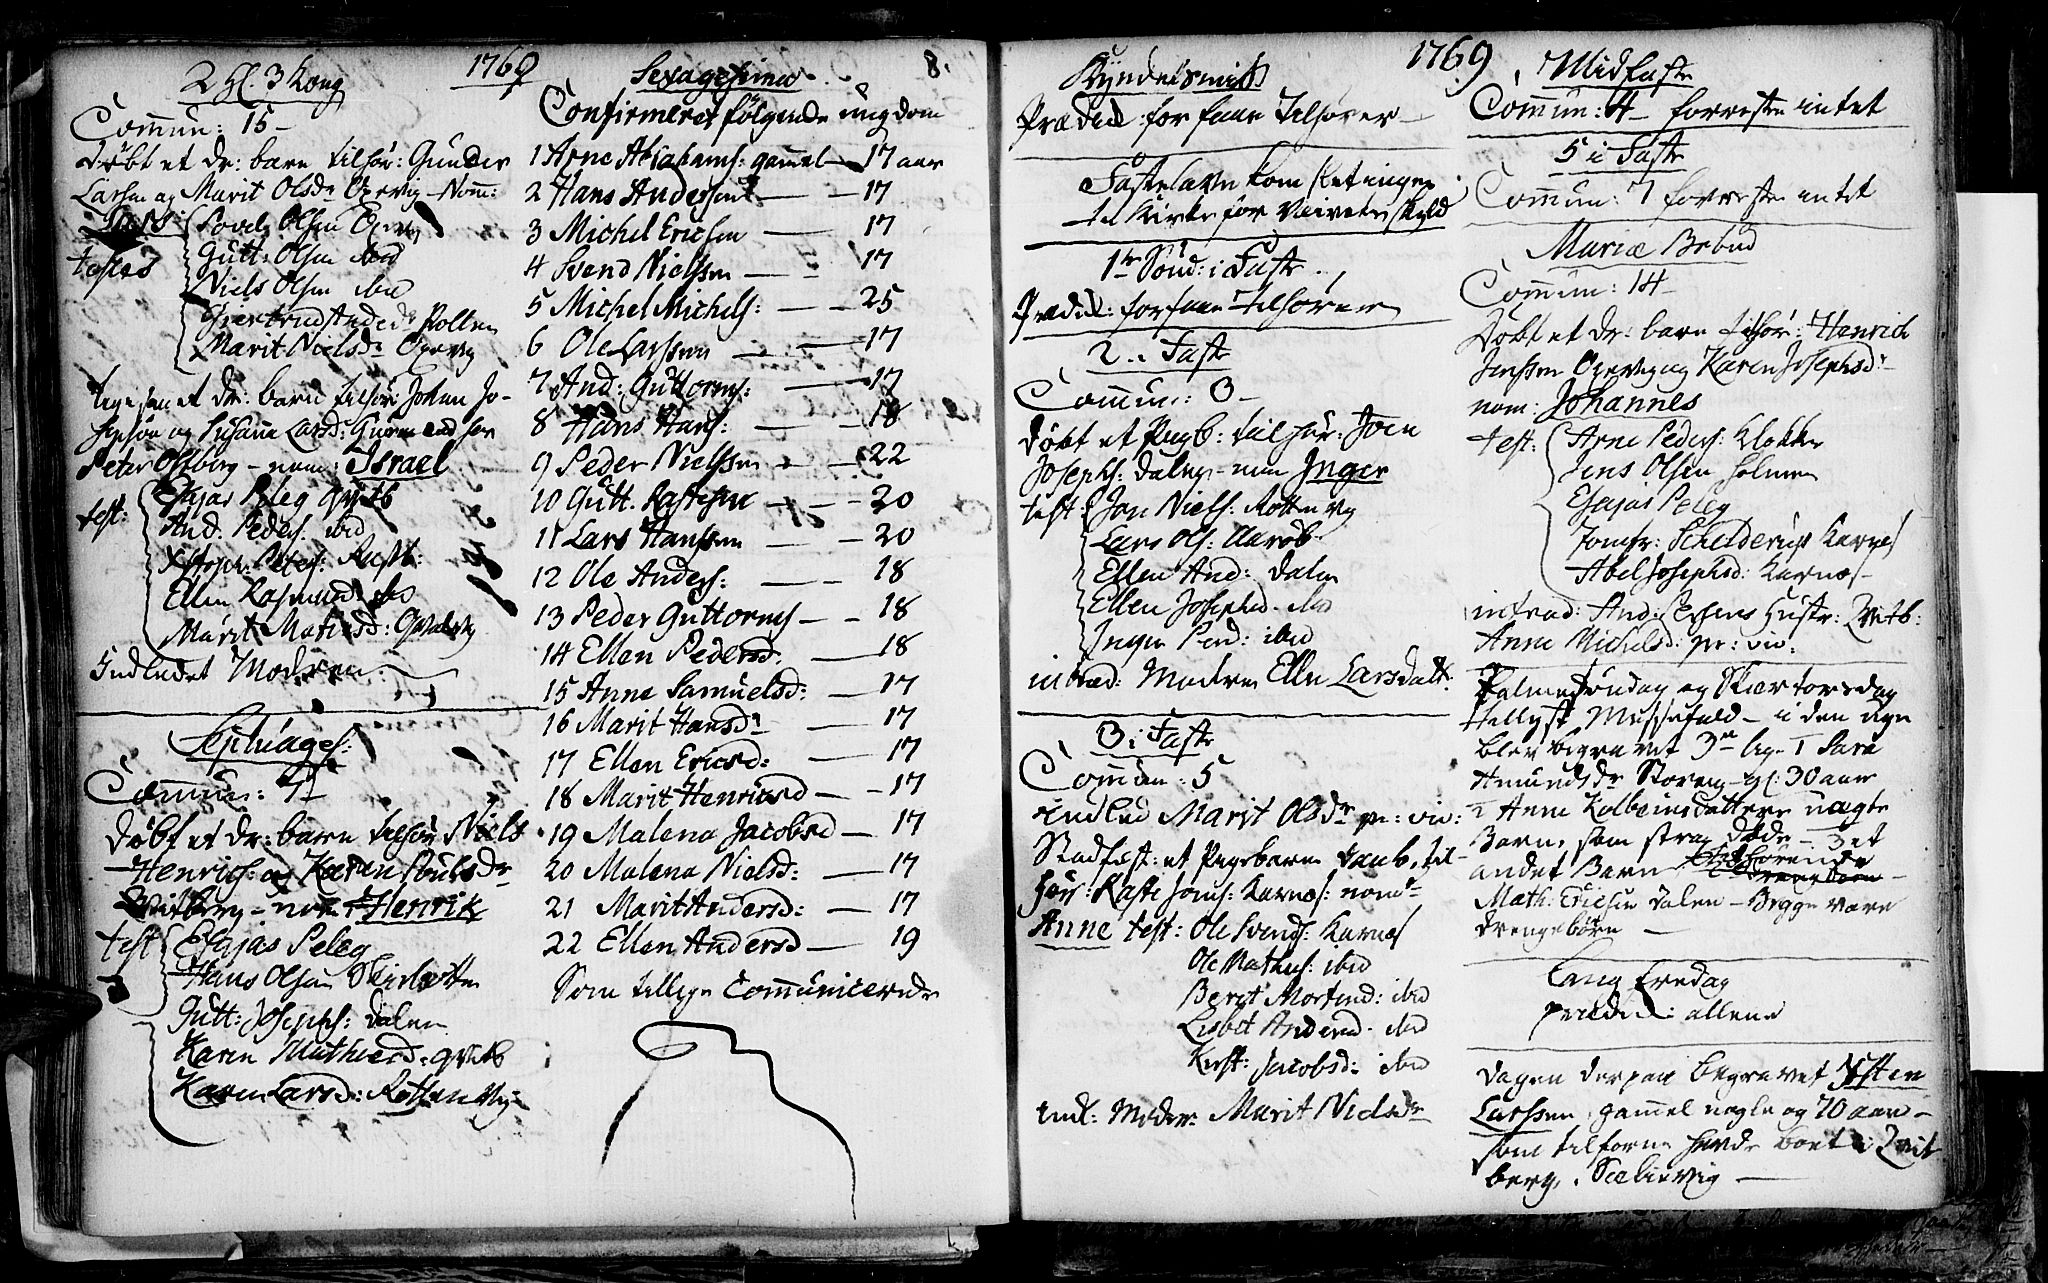 1769
2 Sl. 3 Kong
Commun: 15 –
Døbt et dr: barn tilhør: Gunder
Larsen og Marit Olsdr Opervig – Nom:
Lars
testes Povel Olsen
Gutt: Olsen ibid
Niels Olsen ibid
Giertrud Andersdr Pollen
Marit Nielsdr
et dr: barn tilhør: Johan Jo-
sephsøn og Susanna Larsd:
Peter Ostberg – nom: Israel
test: Esajas Peleg
And. Peders: ibid
Peters:
Ellen Rasmusd
Marit Matisd:
Indledet Moderen
Septuages:
Commun: 7 –
Døbt et dr: barn tilhør Niels
Henrichs: og Karen Poulsdr
Qvitberg – nom Henrik
test Esajas Peleg
Hans Olsen
Gutt: Josephs: Dalen
Karen Mathiesd: qvitb
Karen Larsd: Rottenvig
Sexagesima 8.
Confirmeret følgende ungdom
1 Arne Abrahams: gammel – 17 aar
2 Hans Andersen – 17
3 Michel Ericsen – 17
4 Svend Nielssen – 17
5 Michel Michels: – 25
6 Ole Larssen – 17
7 And: Guttorms: – 17
8 Hans Hans: – 18
9 Peder Nielssen – 22
10 Gutt. – 20
11 Lars Hanssen – 20
12 Ole Anders: – 18
13 Peder Guttorms – 18
14 Ellen Pedersd. – 18
15 Anne Samuelsd: – 17
16 Marit Hansdr – 17
17 Ellen Ericsd: – 17
18 Marit Henricsd – 17
19 Malena Jacobsd – 17
20 Malena Nielsd: – 17
21 Marit Andersd: – 17
22 Ellen Andersd – 19
Som tillige Communicerede
1769
Kyndelsmiss
Prædik: for faae Tilhører –
Fastelavn kom Slet ingen
til Kirke for Veirets skyld
1te Sönd: i Faste
Prædik: for faae Tilhörere
2. i Faste
Commun: 3 –
Døbt et Pigb: tilhör: Joen
Josephs: Dalen – nom Inger
test: Jon Niels: Rottenvg
Lars Ols:
Ellen And: Dalen
Ellen Josephsd. ibid
Inger Ped: ibid
introd: Modren Ellen Larsdatt:
3 i Faste
Commun: 5
indled Marit Olsdr pr: viv:
Stadfæst: et Pigebarn til-
hør: Jons: Karnæs: nom:
Anne test: Ole Svends: Karnæs
Ole Mathis: ibid
Berit Mortensd: ibid
Lisbet Andersd. ibid
Kirst: Jacobsd: ibid
Indl: Moder: Marit Nielsdr
Midfaste
Commun: 4 – forresten intet
5 i Faste
Commun: 7 forresten intet
Mariæ Bebud
Commun: 14 –
Døbt et dr: barn tilhør: Henrich
Jenssen og Karen Josephsd:
nom: Johannes
test: Arne Peders: Klokker
Jens Olsen Holmen
Esajas Peleg
Jomfr: Schelderup Karnæs
Abel Josephsd: Karnæs –
introd: And: Hustr: Qvitb:
Anne Michelsd: pr: viv.
Palmesøndag og Skiertorsdag
Messefald – i den uge
blev begravet 3de lig. 1 Sara
Amundsdr – gl: 30 aar
2 Anne Kolbeinsdatters uægte
Barn, som strax døde – 3 et
andet Barn tilhørende
Math: Ericsen Dalen – Begge vare
drengebørn –
Lang fredag
prædik: allene
Dagen derpaa begravet
Larssen, gammel nogle og 70 aar –
som tilforn havde boet i Qvit
berg,